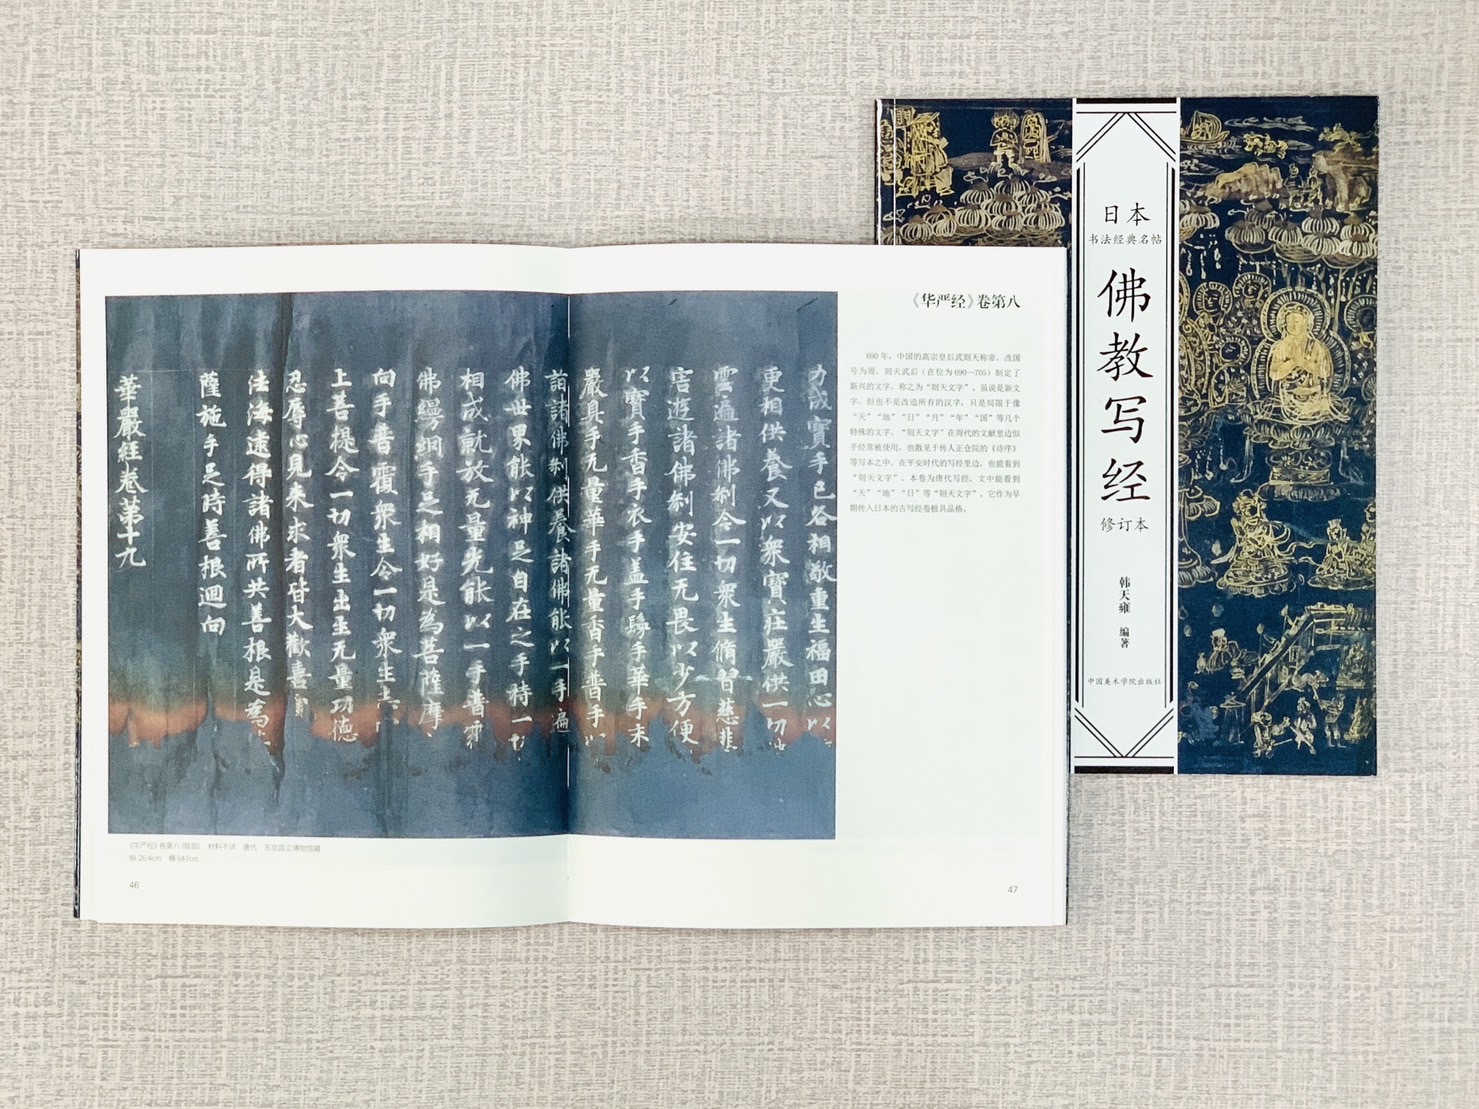 成寶手已各相敬重生福田心以
更相供養又以衆寶庄嚴供一切
雲遍諸佛刹令一切衆生脩習慈悲
害遊諸佛刹安住无畏以少方便
以寶手香手衣手盖手手華手末
嚴具手无量華手无量香手普手
詣諸佛刹供養諸佛能以一手遍
佛世界能以神足自在之手持一切
相成就放无量光能以一手普
佛縵網手足相好是為菩薩摩
向手普覆衆生令一切衆生
上菩提令一切衆生出生无量功德
忍辱心見来求者皆大歡喜
法海遠得諸佛所共善根是為
薩施手足時善根迴向
華嚴經卷第十九
《华严经》卷第八(局部) 材料不详 唐代 东京国立博物馆藏
纵 26.4cm 横 641cm
46
《华严经》卷第八
690 年，中国的高宗皇后武则天称帝，改国
号为周。则天武后（在位为 690—705）制定了
新兴的文字，称之为“则天文字”。虽说是新文
字，但也不是改造所有的汉字，只是局限于像
“天”“地”“日”“月”“年”“国”等几个
特殊的文字。“则天文字”在周代的文献里边似
乎经常被使用，也散见于传入正仓院的《诗序》
等写本之中。在平安时代的写经里边，也能看到
“则天文字”。本卷为唐代写经，文中能看到
“天”“地”“日”等“则天文字”。它作为早
期传入日本的古写经卷极具品格。
47
日本
书法经典名帖
佛教写经
修订本
韩天雍 编著
中国美术学院出版社